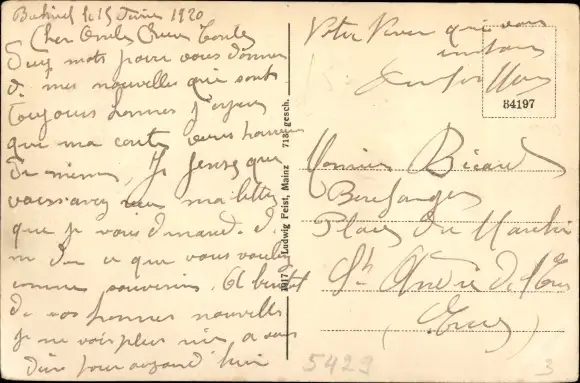 le 15 Janvier 1920
Cher Oncle Chère Tante
Deux mots pour vous donner
de mes nouvelles qui sont
toujours bonnes j'espère
que ma carte vous
de même, Je pense que
vous avez ma lettre
que je vous
me ce que vous voulez
comme souvenir. Et
de vos bonnes nouvelles
je ne vois plus rien a vous
dire pour aujourd'hui
Votre neveu qui vous
84197
1917 Ludwig Feist, Mainz 718 gesch.
Monsieur Bicard
Boulanger
Place du Marché
St André de l'Eure
(Eure)
5429
3